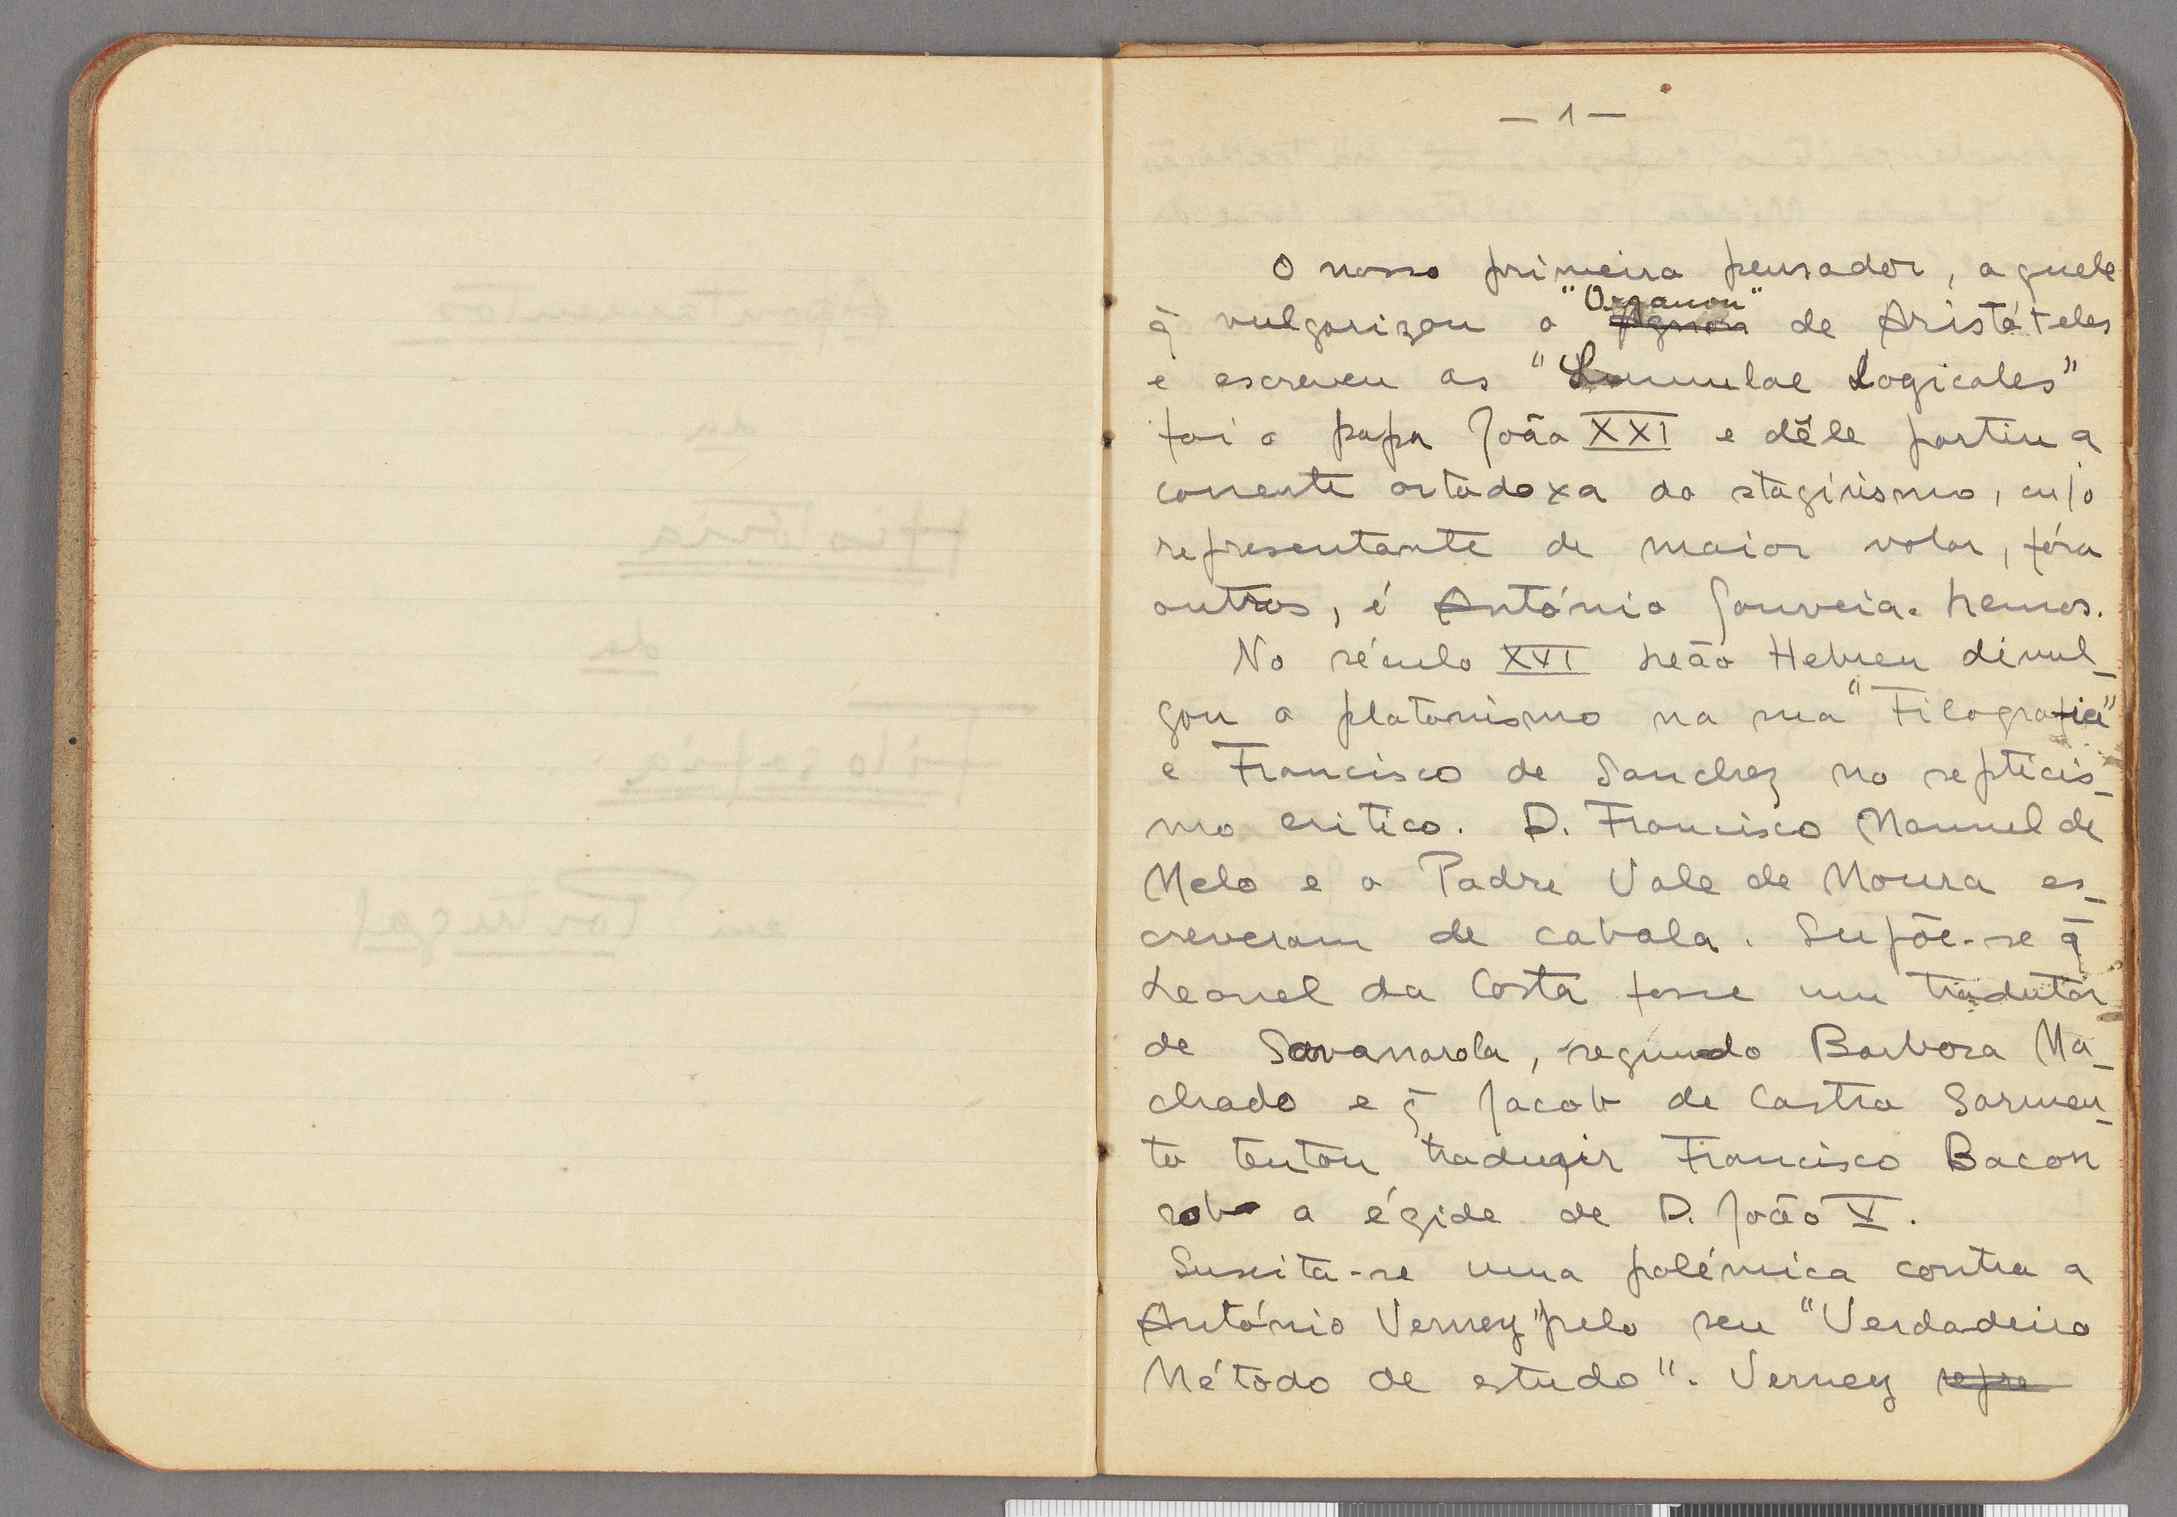 — 1 —
O nosso primeiro pensador, aquele
q̃ vulgarizou o "Organon" de Aristóteles
e escreveu as "Summulae Logicales"
foi o papa João XXI e dêle partiu a
corrente ortodoxa do stagirismo, cujo
representante de maior valor, fóra
outros, é António Gouveia. Lemos.
No século XVI Leão Hebreu divul-
gou o platonismo na sua "Filografia"
e Francisco de Sanchez no septicis-
mo critico. D. Francisco Manuel de
Melo e o Padre Vale de Moura es-
creveram de cabala. Supõe-se q̃
Leonel da Costa fosse um tradutor
de Savanarola, segundo Barbosa Ma-
chado e q̃ Jacob de Castro Sarmen-
to tentou traduzir Francisco Bacon
sob a égide de D. João V.
Suscita-se uma polémica contra a
António Verney "pelo seu "Verdadeiro
Método de estudo". Verney repre